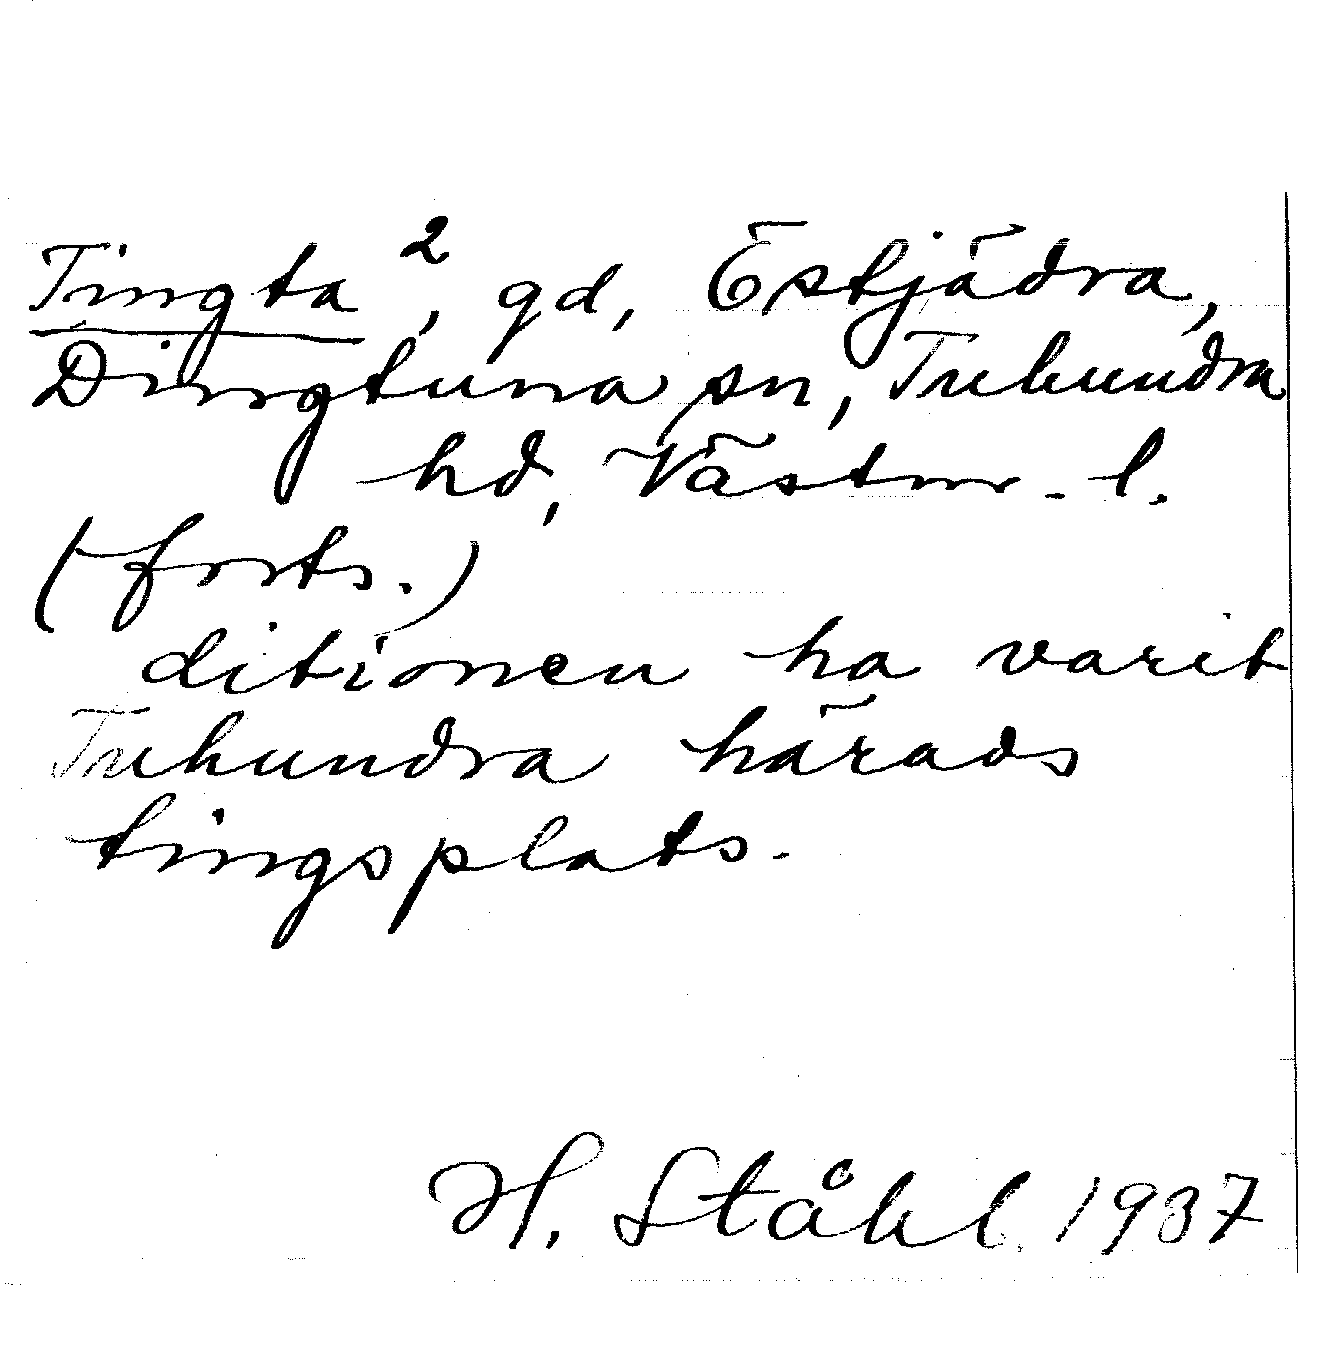 Tingta 2, gd, Östjädra,
Dingtuna sn, Tuhundra
hd, Västm. l.
(forts.)
ditionen ha varit
Tuhundra härads
tingsplats.
H. Ståhl 1937